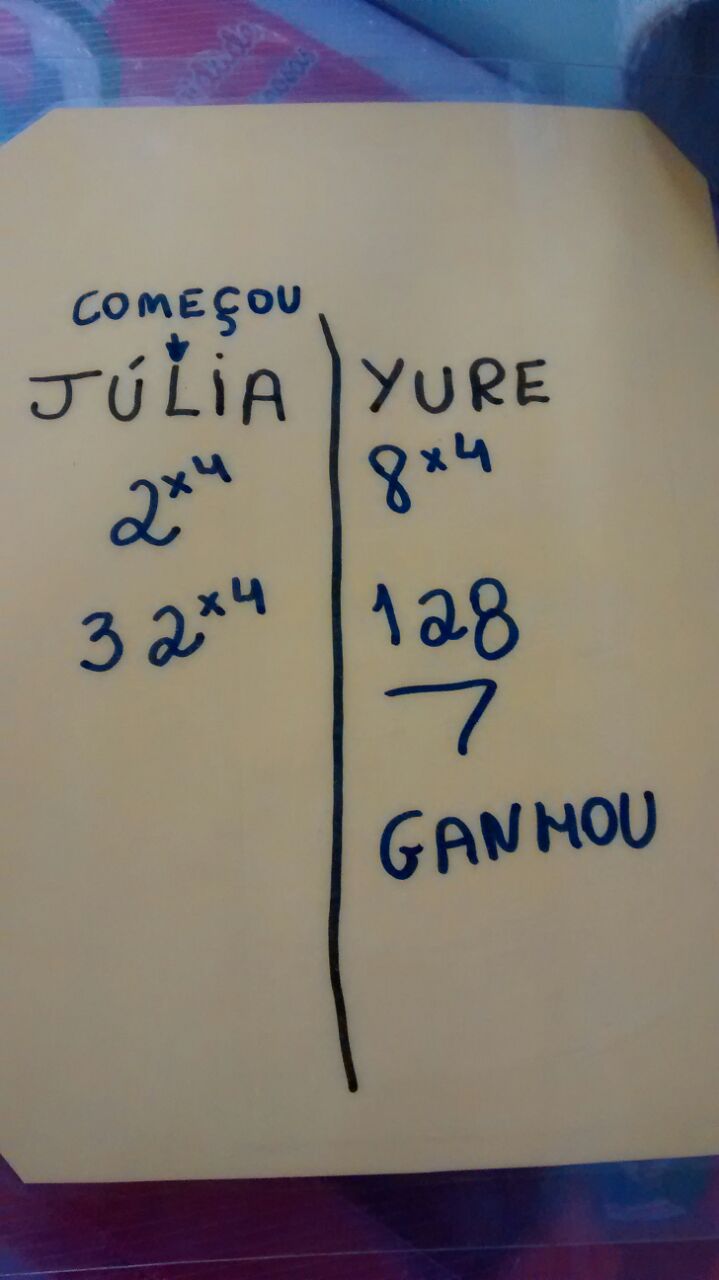 COMEÇOU
JÚLIA
2 x4
32 x4
YURE
8 x4
128
GANHOU